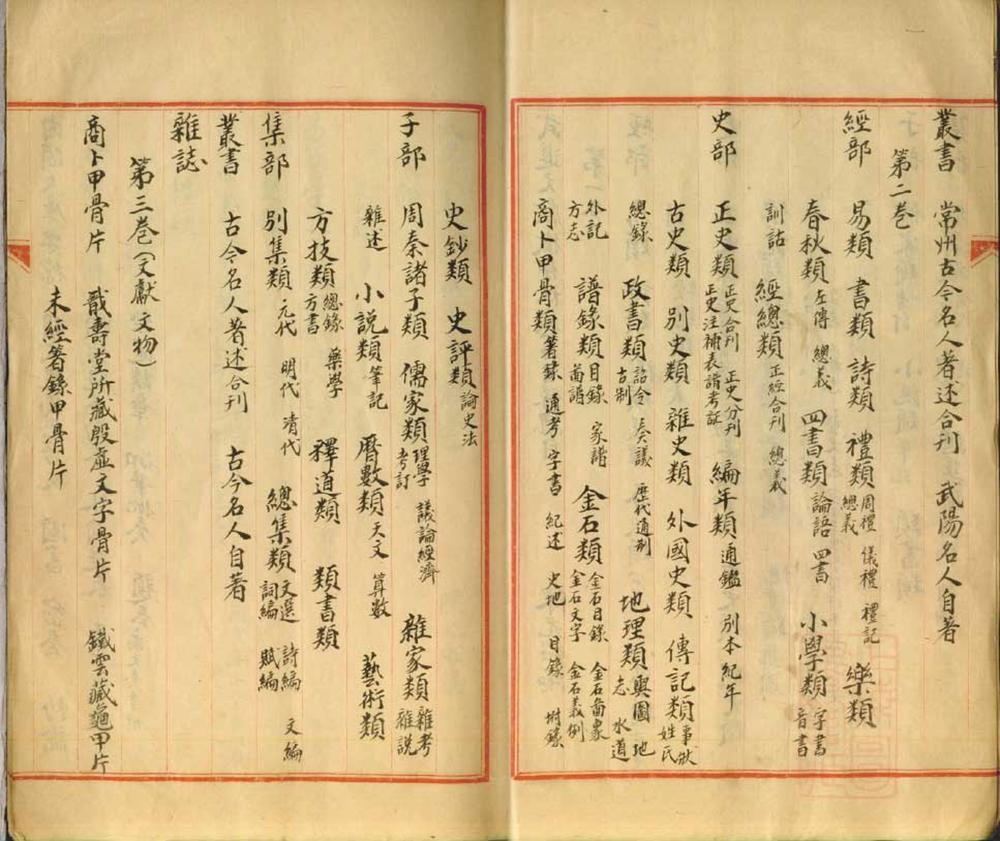 叢書　常州古今名人著述合刊　武陽名人自著
第二卷
經部　易類　書類　詩類　禮類　周禮　儀禮　禮記　總義　樂類
春秋類　左傳　總義　四書類　論語　四書　小學類　字書　音書
訓詁　經總類　正經合刊　總義
史部　正史類　正史合刊　正史分刊　正史注補表譜考証　編年類　通鑑　別本紀年
古史類　別史類　雜史類　外國史類　傳記類　事狀　姓氏
總錄　政書類　詔令　奏議　歷代通制　古制　地理類　輿圖　地志　水道
外記　方志　譜錄類　目錄　家譜　畜譜　金石類　金石目錄　金石圖象　金石文字　金石義例
商卜甲骨類　著錄　通考　字書　紀述　史地　目錄　坿錄
史鈔類　史評類　論史法
子部　周秦諸子類　儒家類　理學　議論經濟　考訂　雜家類　雜考　雜說
雜述　小說類　筆記　曆數類　天文　算數　藝術類
方技類　總錄　藥學　方書　釋道類　類書類
集部　別集類　元代　明代　清代　總集類　文選　詩編　文編　詞編　賦編
叢書　古今名人著述合刊　古今名人自著
雜誌
第三卷（文獻　文物）
商卜甲骨片　戩壽堂所藏殷虛文字骨片　鐵雲藏龜甲片
未經箸錄甲骨片